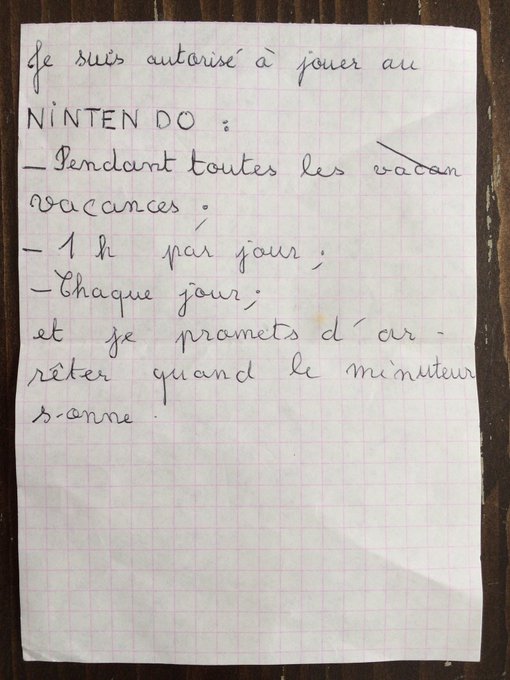 Je suis autorisé à jouer au
NiNTENDO :
- Pendant toutes les vacan
vacances ;
- 1 h par jour ;
- Chaque jour ;
et je promets d'ar-
rêter quand le minuteur
s-onne.